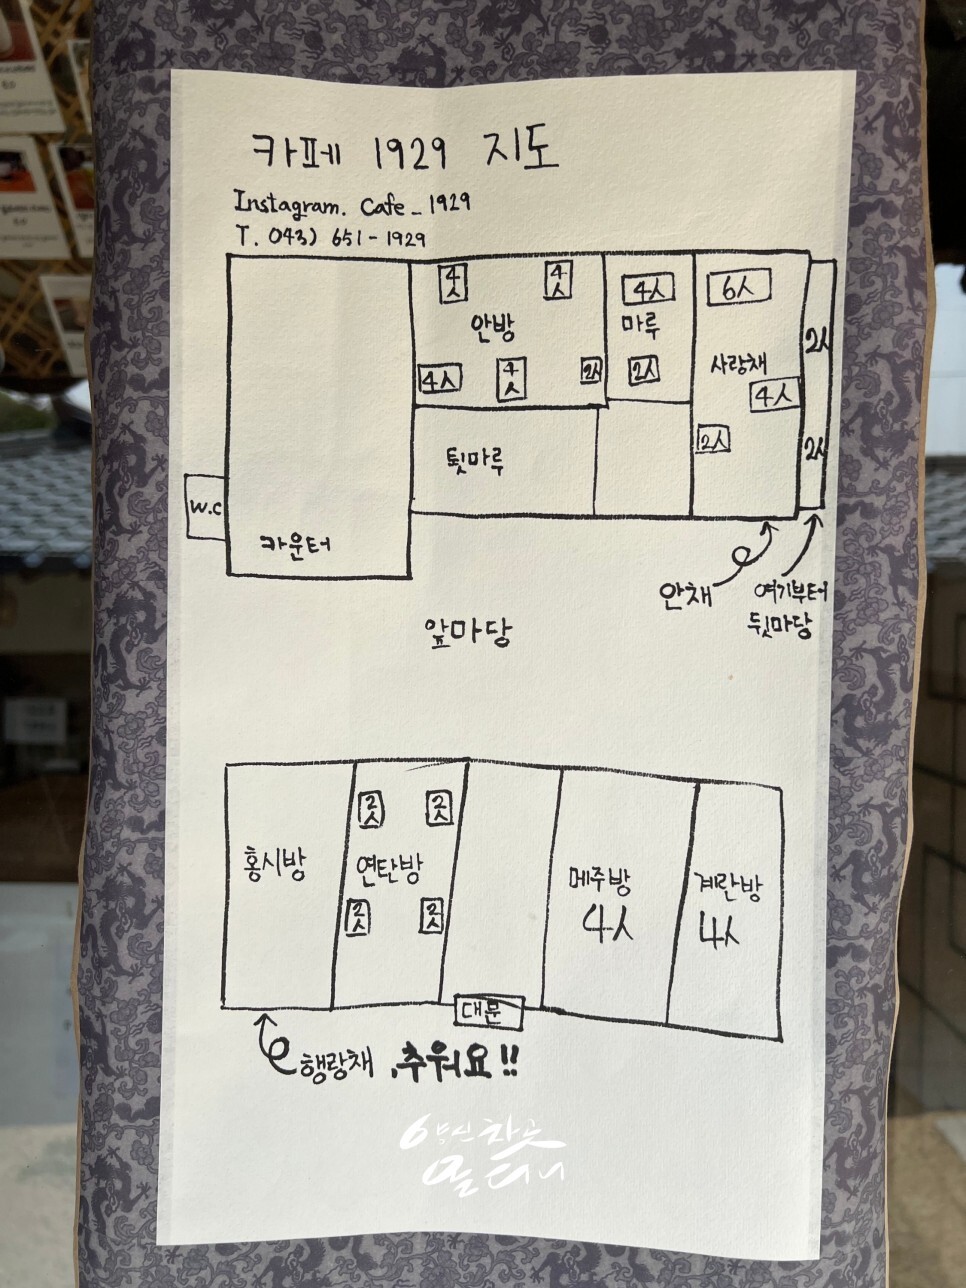 카페 1929 지도
Instagram. Cafe_1929
T. 043) 651-1929
4人
4人
안방
4人
4人
2人
4人
마루
2人
6人
사랑채
4人
2人
2人
2人
툇마루
W.C
카운터
안채
여기부터
뒷마당
앞마당
홍시방
2人
2人
연탄방
2人
2人
메주방
4人
계란방
4人
대문
행랑채, 추워요!!